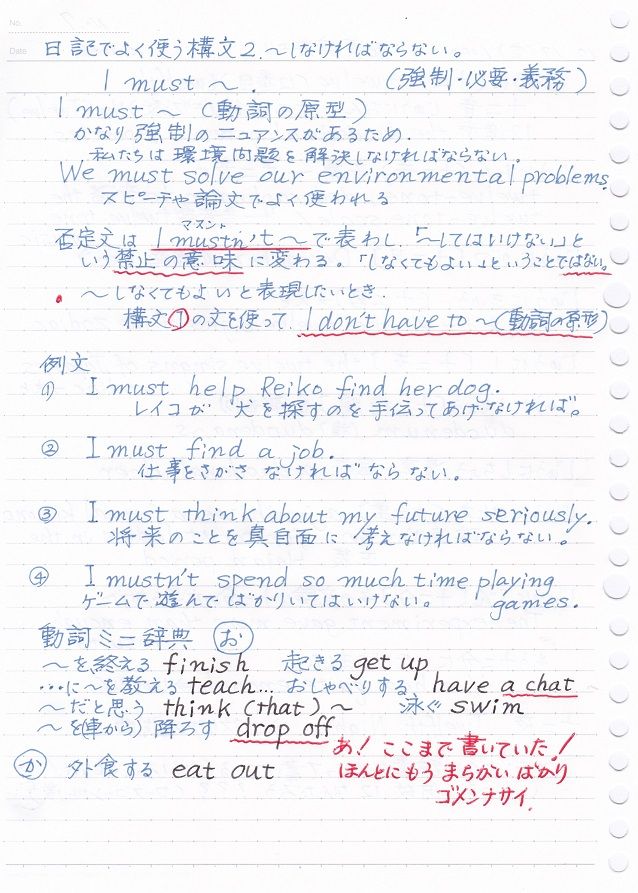 No.
Date
日記でよく使う構文2. 〜しなければならない。
I must 〜. (強制・必要・義務)
I must 〜 (動詞の原型)
かなり強制のニュアンスがあるため.
私たちは環境問題を解決しなければならない。
We must solve our environmental problems.
スピーチや論文でよく使われる
マスント
否定文は I mustn't 〜 で表わし.「〜してはいけない」と
いう禁止の意味に変わる。「しなくてもよい」ということではない。
〜しなくてもよいと表現したいとき.
構文①の文を使って. I don't have to 〜(動詞の原形)
例文
① I must help Reiko find her dog.
レイコが犬を探すのを手伝ってあげなければ。
② I must find a job.
仕事をさがさなければならない。
③ I must think about my future seriously.
将来のことを真自面に考えなければならない。
④ I mustn't spend so much time playing
ゲームで遊んでばかりいてはいけない。 games.
動詞ミニ辞典 お
〜を終える finish 起きる get up
…に〜を教える teach… おしゃべりする have a chat
〜だと思う think (that) 〜 泳ぐ swim
〜を(車から) 降ろす drop off
あ! ここまで書いていた!
か 外食する eat out ほんとにもうまちがいばかり
ゴメンナサイ.